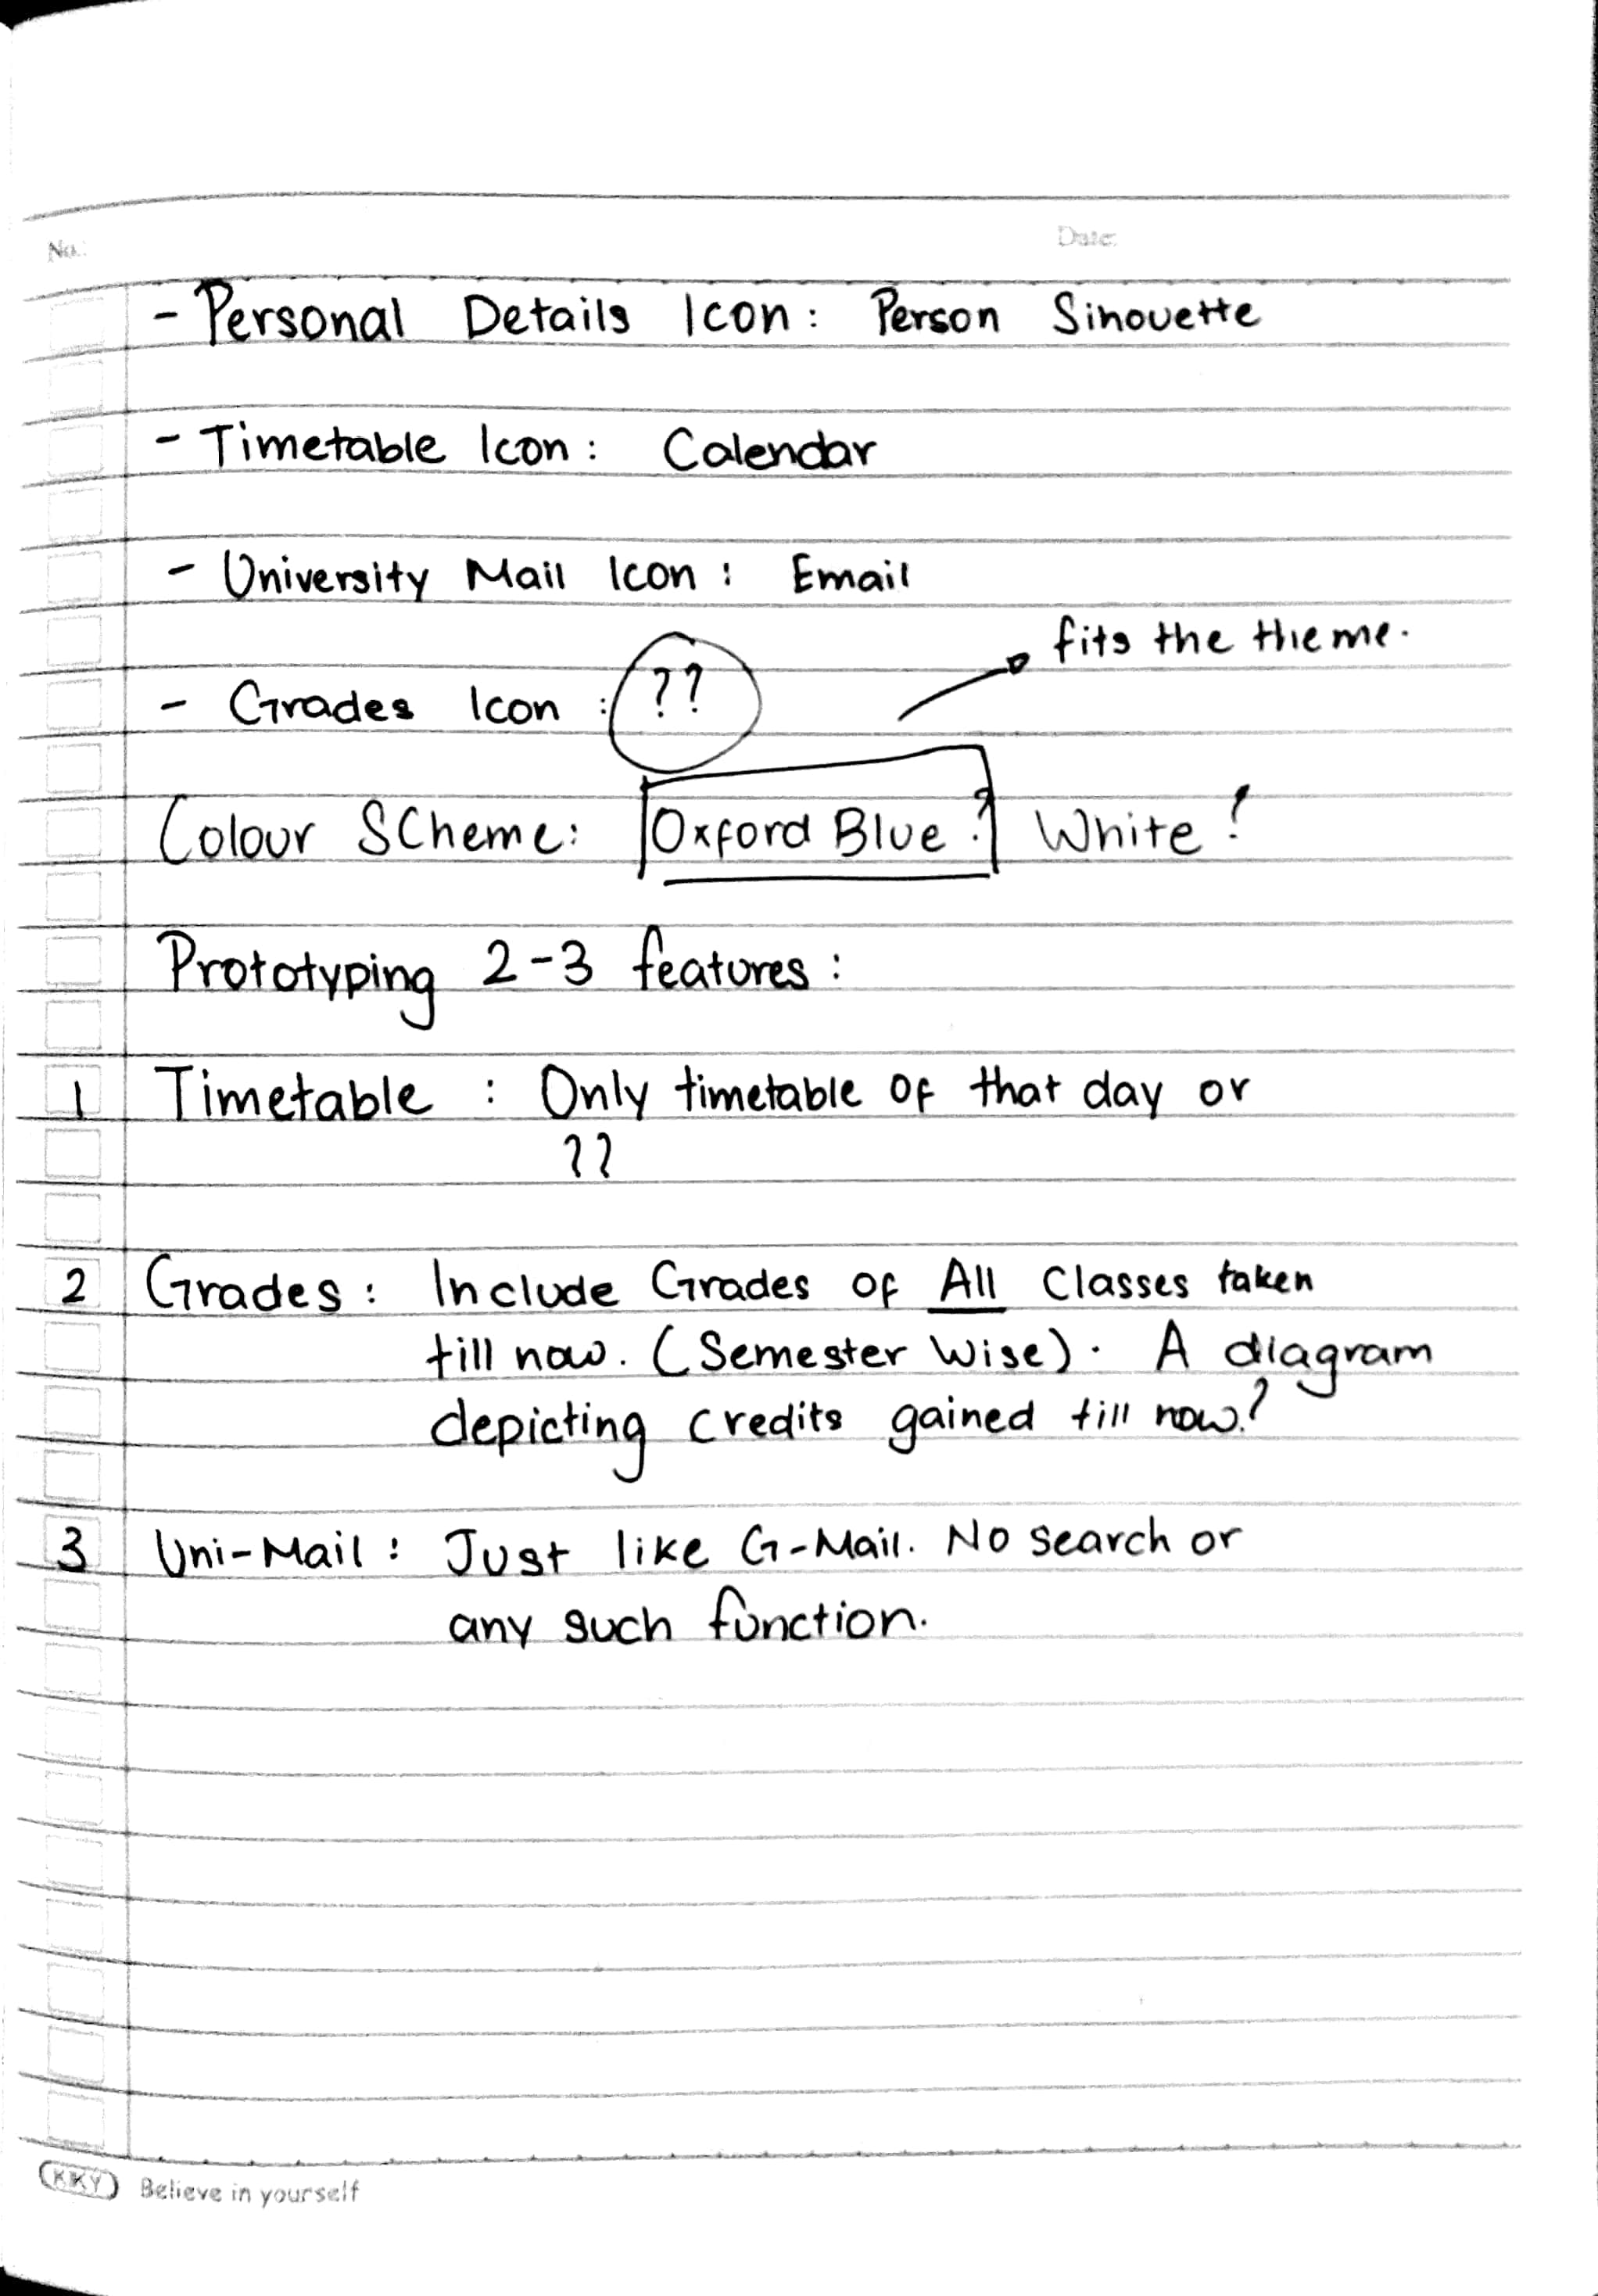 No.: Date:
- Personal Details Icon: Person Sinouette
- Timetable Icon: Calendar
- University Mail Icon: Email
fits the theme.
- Grades Icon: ??
Colour Scheme: Oxford Blue? White?
Prototyping 2-3 features:
1 Timetable: Only timetable of that day or
??
2 Grades: Include Grades of All Classes taken
till now. (Semester Wise). A diagram
depicting credits gained till now?
3 Uni-Mail: Just like G-Mail. No search or
any such function.
KKY Believe in yourself